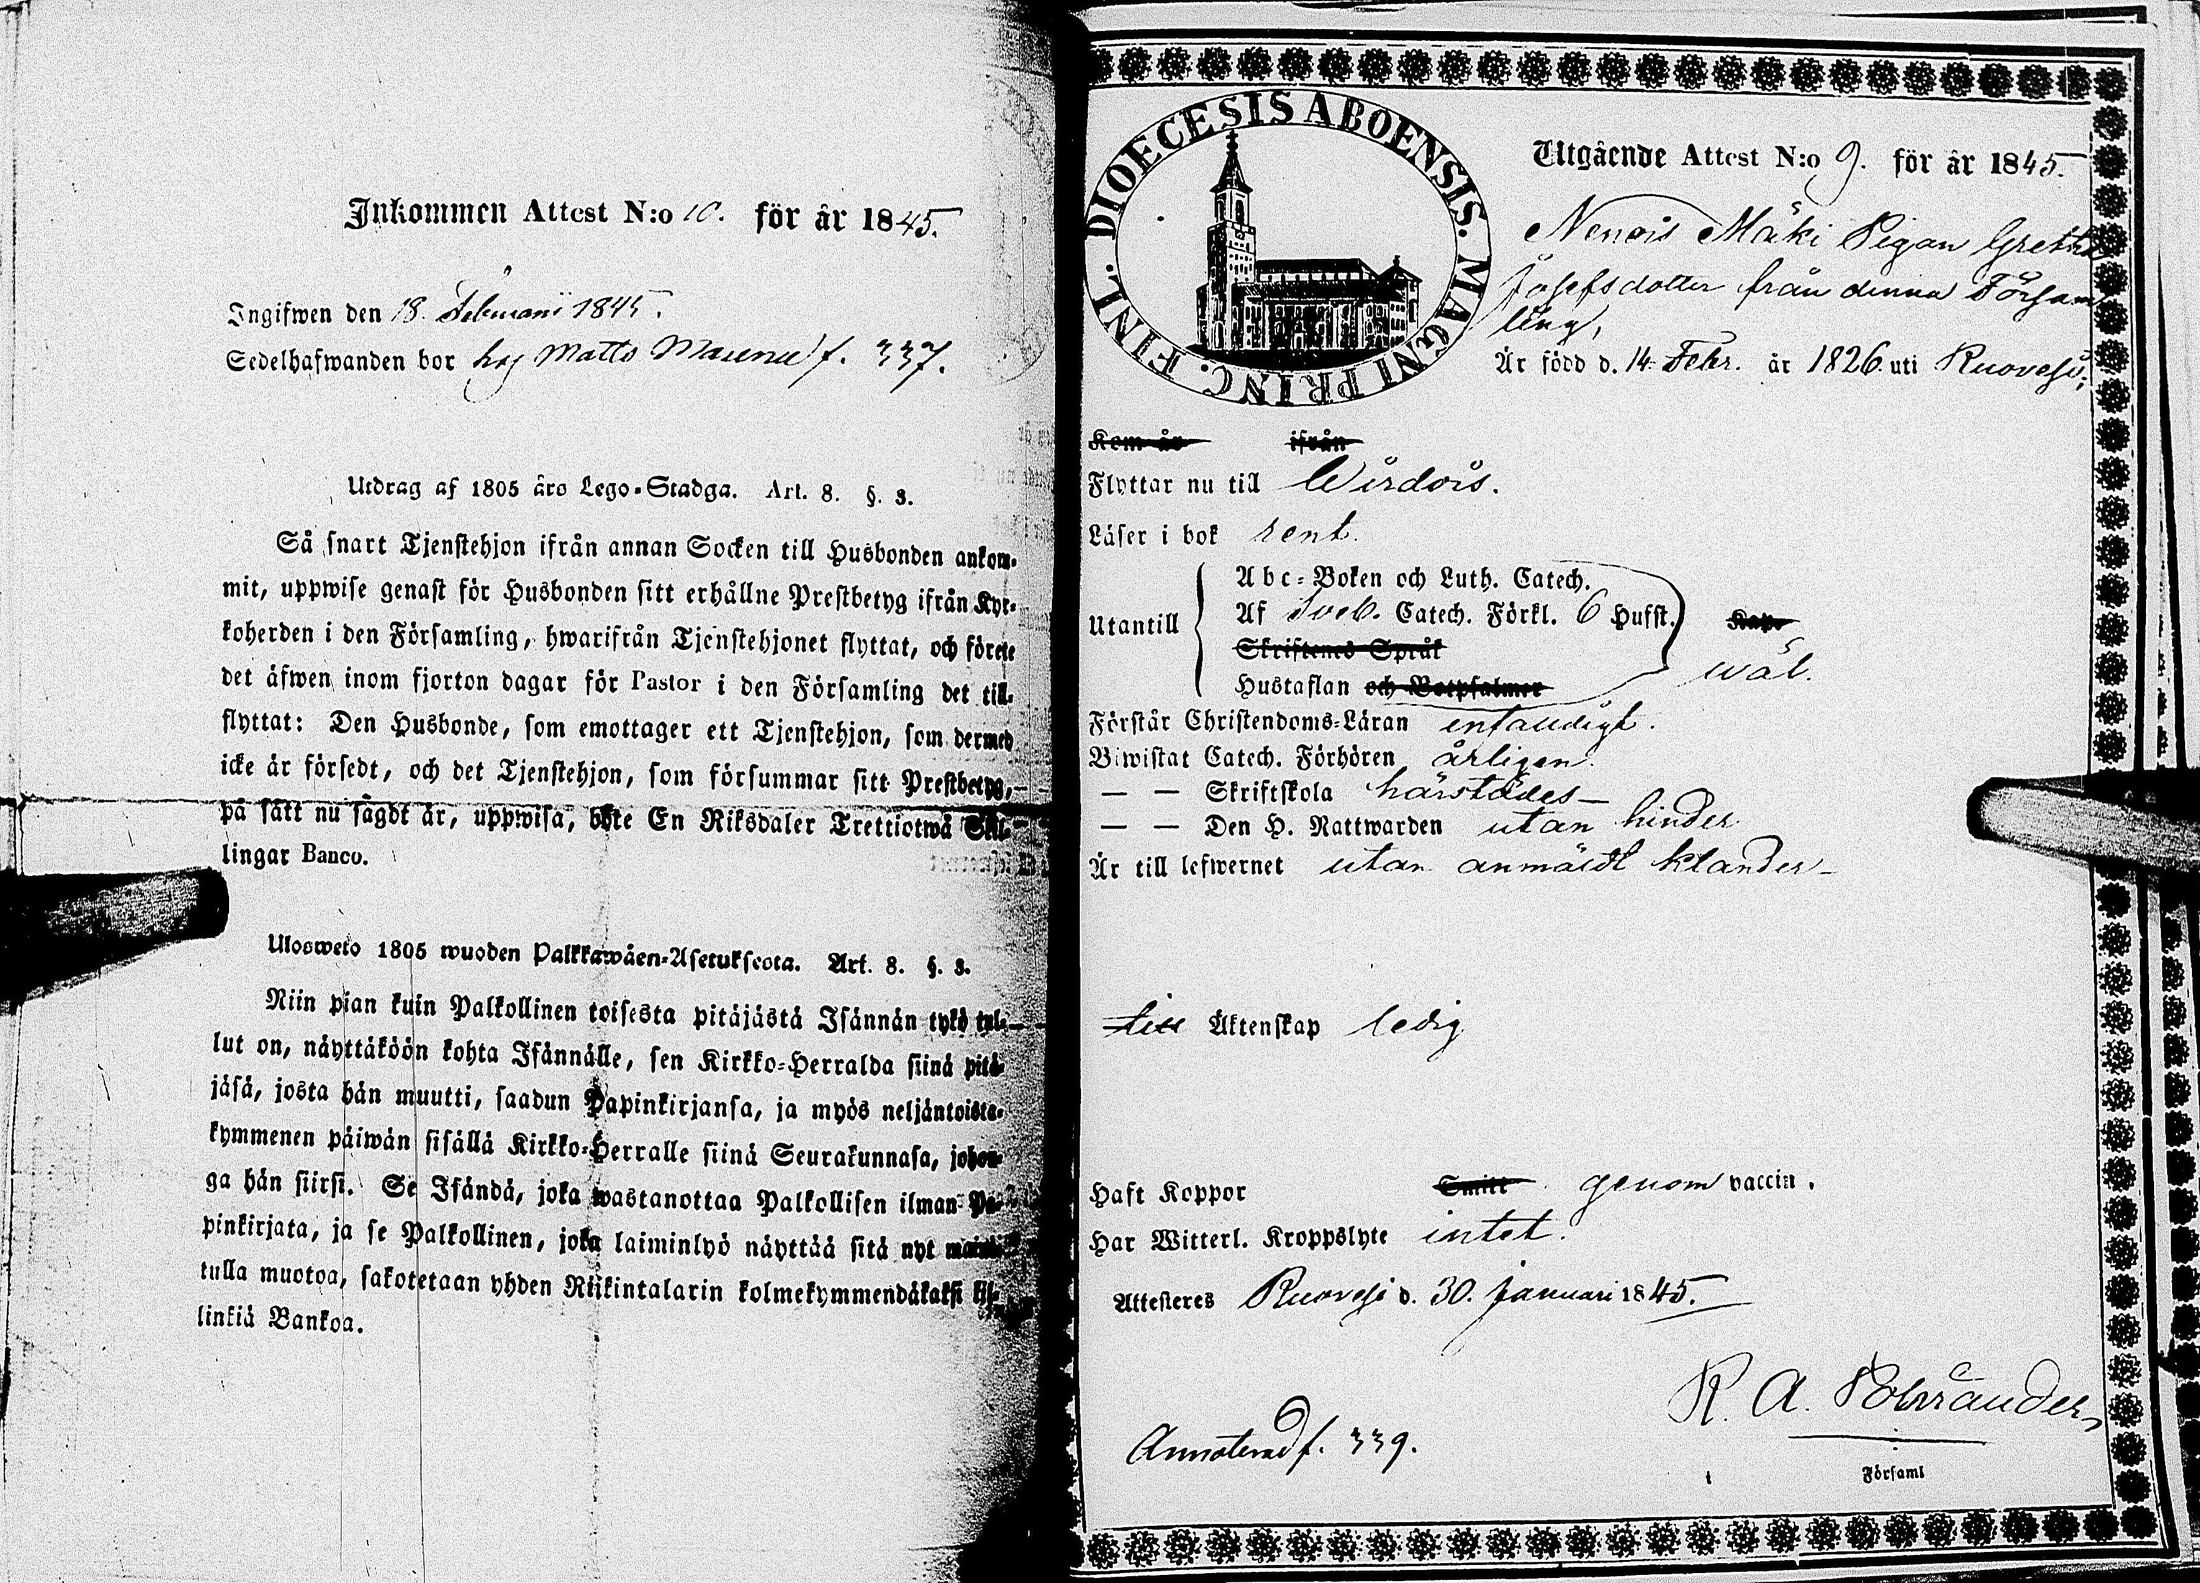 Inkommen Attest N:o 10. för år 1845.
Ingifwen den 18. Februarii 1845.
Sedelhafwanden bor hos Matts f. 337.
Utdrag af 1805 års Lego-Stadga. Art. 8. §. 3.
Så snart Tjenstehjon ifrån annan Socken till Husbonden ankom-
mit, uppwise genast för Husbonden sitt erhållne Prestbetyg ifrån Kyr-
koherden i den Församling, hwarifrån Tjenstehjonet flyttat, och förete
det äfwen inom fjorton dagar för Pastor i den Församling det till-
flyttat: Den Husbonde, som emottager ett Tjenstehjon, som dermed
icke är försedt, och det Tjenstehjon, som försummar sitt Prestbetyg,
på sätt nu sägdt är, uppwisa, böte En Riksdaler Trettiotwå Skil-
lingar Banco.
Ulosweto 1805 wuoden Palkkawäen-Asetuksesta. Art. 8. §. 3.
Niin pian kuin Palkollinen toisesta pitäjästä Isännän tykö tul-
lut on, näyttäköön kohta Isännälle, sen Kirkko-Herralda siinä pitä-
jäsä, josta hän muutti, saadun Papinkirjansa, ja myös neljäntoista-
kymmenen päiwän sisällä Kirkko-Herralle siinä Seurakunnasa, johon-
ga hän siirsi. Se Isändä, joka wastanottaa Palkollisen ilman Pa-
pinkirjata, ja se Palkollinen, joka laiminlyö näyttää sitä nyt mainit-
tulla muotoa, sakotetaan yhden Riikintalarin kolmekymmendäkaksi kil-
linkiä Bankoa.
DIOECESIS ABOENSIS. MAGNI PRINC. FINL.
Utgående Attest N:o 9. för år 1845.
Mäki Pigan Gretha
Josefsdotter från denna Försam
ling,
Är född d. 14 Febr. år 1826 uti Ruovesi;
Kom år ifrån
Flyttar nu till Wirdois.
Läser i bok rent.
Abc-Boken och Luth. Catech.
Utantill Af Sveb. Catech. Förkl. 6 Hufst. Kap.
Skriftenes Språk wäl.
Hustaflan och Botpsalmer
Förstår Christendoms-Läran enfaldigt.
Biwistat Catech. Förhören årligen.
— — Skriftskola härstädes—
— — Den H. Nattwarden utan hinder
Är till lefwernet utan anmäldt klander—
till Äktenskap ledig
Haft Koppor Smitt genom vaccin.
Har Witterl. Kroppslyte intet.
Attesteres Ruovesi d. 30. Januari 1845.
K. A.
Annoterad f. 339.
Församl